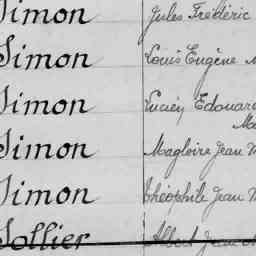 Simon Jules Frédéric
Simon Louis Eugène
Simon Lucien Edouard
Simon Magloire Jean
Simon Théophile Jean
Sollier Albert Jean